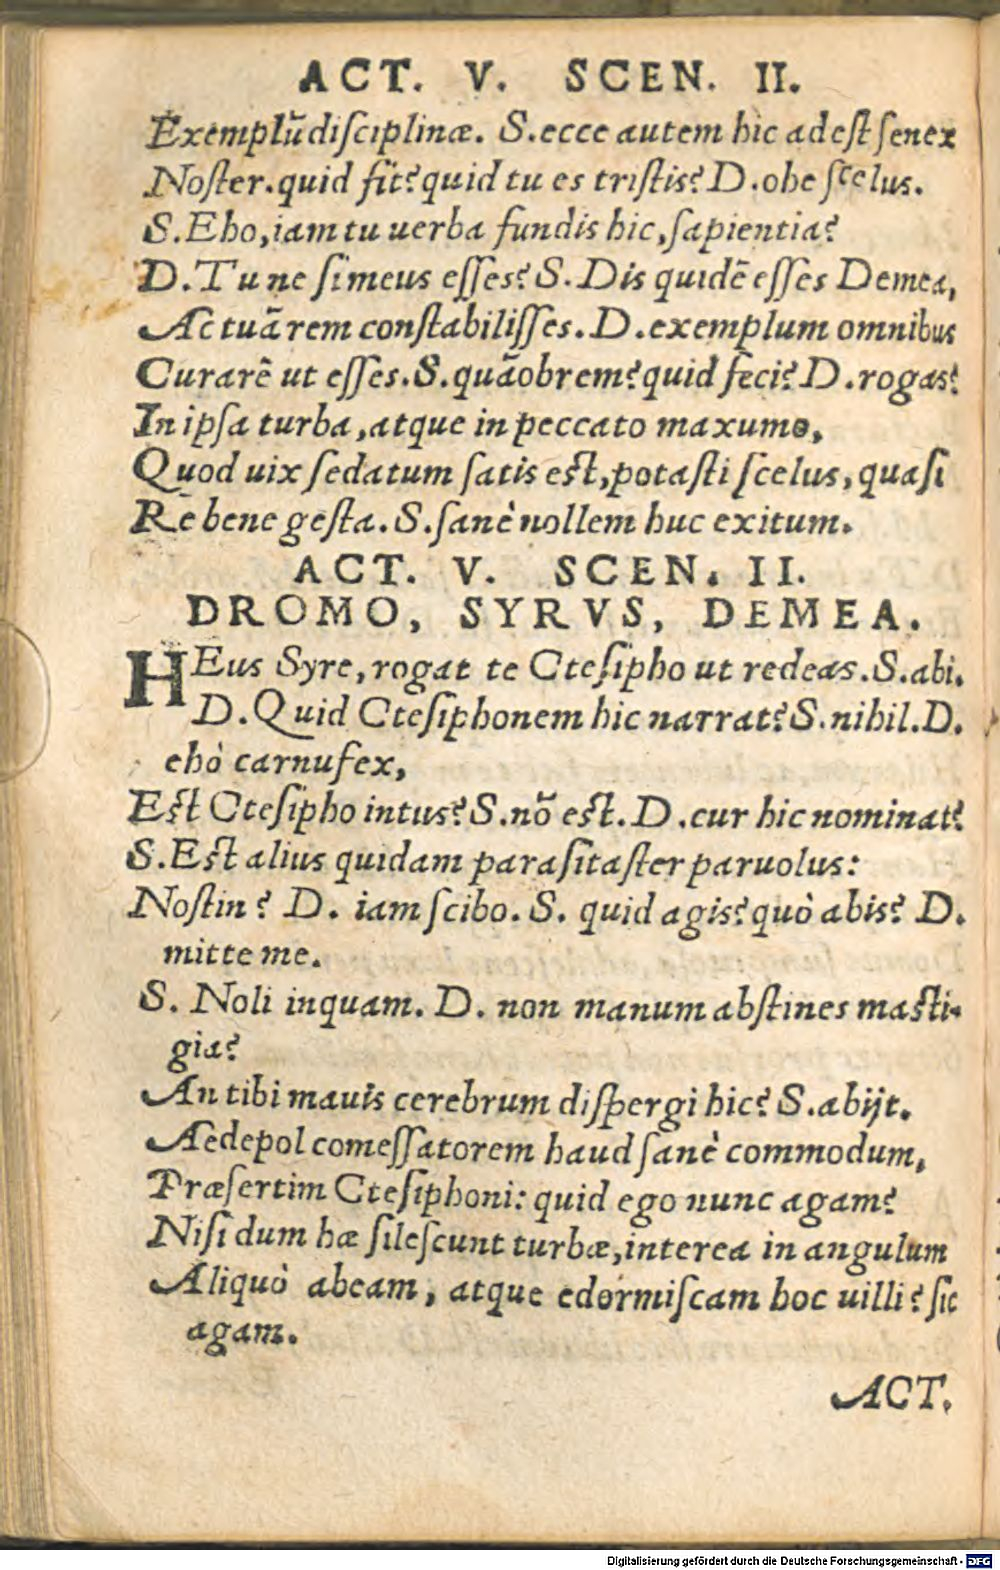 ACT. V. SCEN. II.
Exemplũ diſciplinæ. S.ecce autem hic adeſt ſenex
Noſter.quid fit? quid tu es triſtis? D.ohe ſcelus.
S.Eho,iam tu uerba fundis hic,ſapientia?
D.Tu ne ſi meus eſſes? S.Dis quidē eſſes Demea,
Ac tuā rem conſtabiliſſes. D.exemplum omnibus
Curarē ut eſſes. S.quāobrem? quid feci? D.rogas?
In ipſa turba,atque in peccato maxumo,
Quod uix ſedatum ſatis eſt,potaſti ſcelus, quaſi
Re bene geſta. S.ſanè nollem huc exitum.
ACT. V. SCEN. II.
DROMO, SYRVS, DEMEA.
HEus Syre, rogat te Cteſipho ut redeas. S.abi.
D.Quid Cteſiphonem hic narrat? S.nihil. D.
ehò carnufex,
Eſt Cteſipho intus? S.nō eſt. D.cur hic nominat?
S.Eſt alius quidam paraſitaſter paruolus:
Noſtin? D. iam ſcibo. S. quid agis? quò abis? D.
mitte me.
S. Noli inquam. D. non manum abſtines maſti-
gia?
An tibi mauis cerebrum diſpergi hic? S.abijt.
Aedepol comeſſatorem haud ſanè commodum,
Præſertim Cteſiphoni: quid ego nunc agam?
Niſi dum hæ ſileſcunt turbæ,interea in angulum
Aliquò abeam, atque edormiſcam hoc uilli? ſic
agam.
ACT.
Digitalisierung gefördert durch die Deutsche Forschungsgemeinschaft - DFG